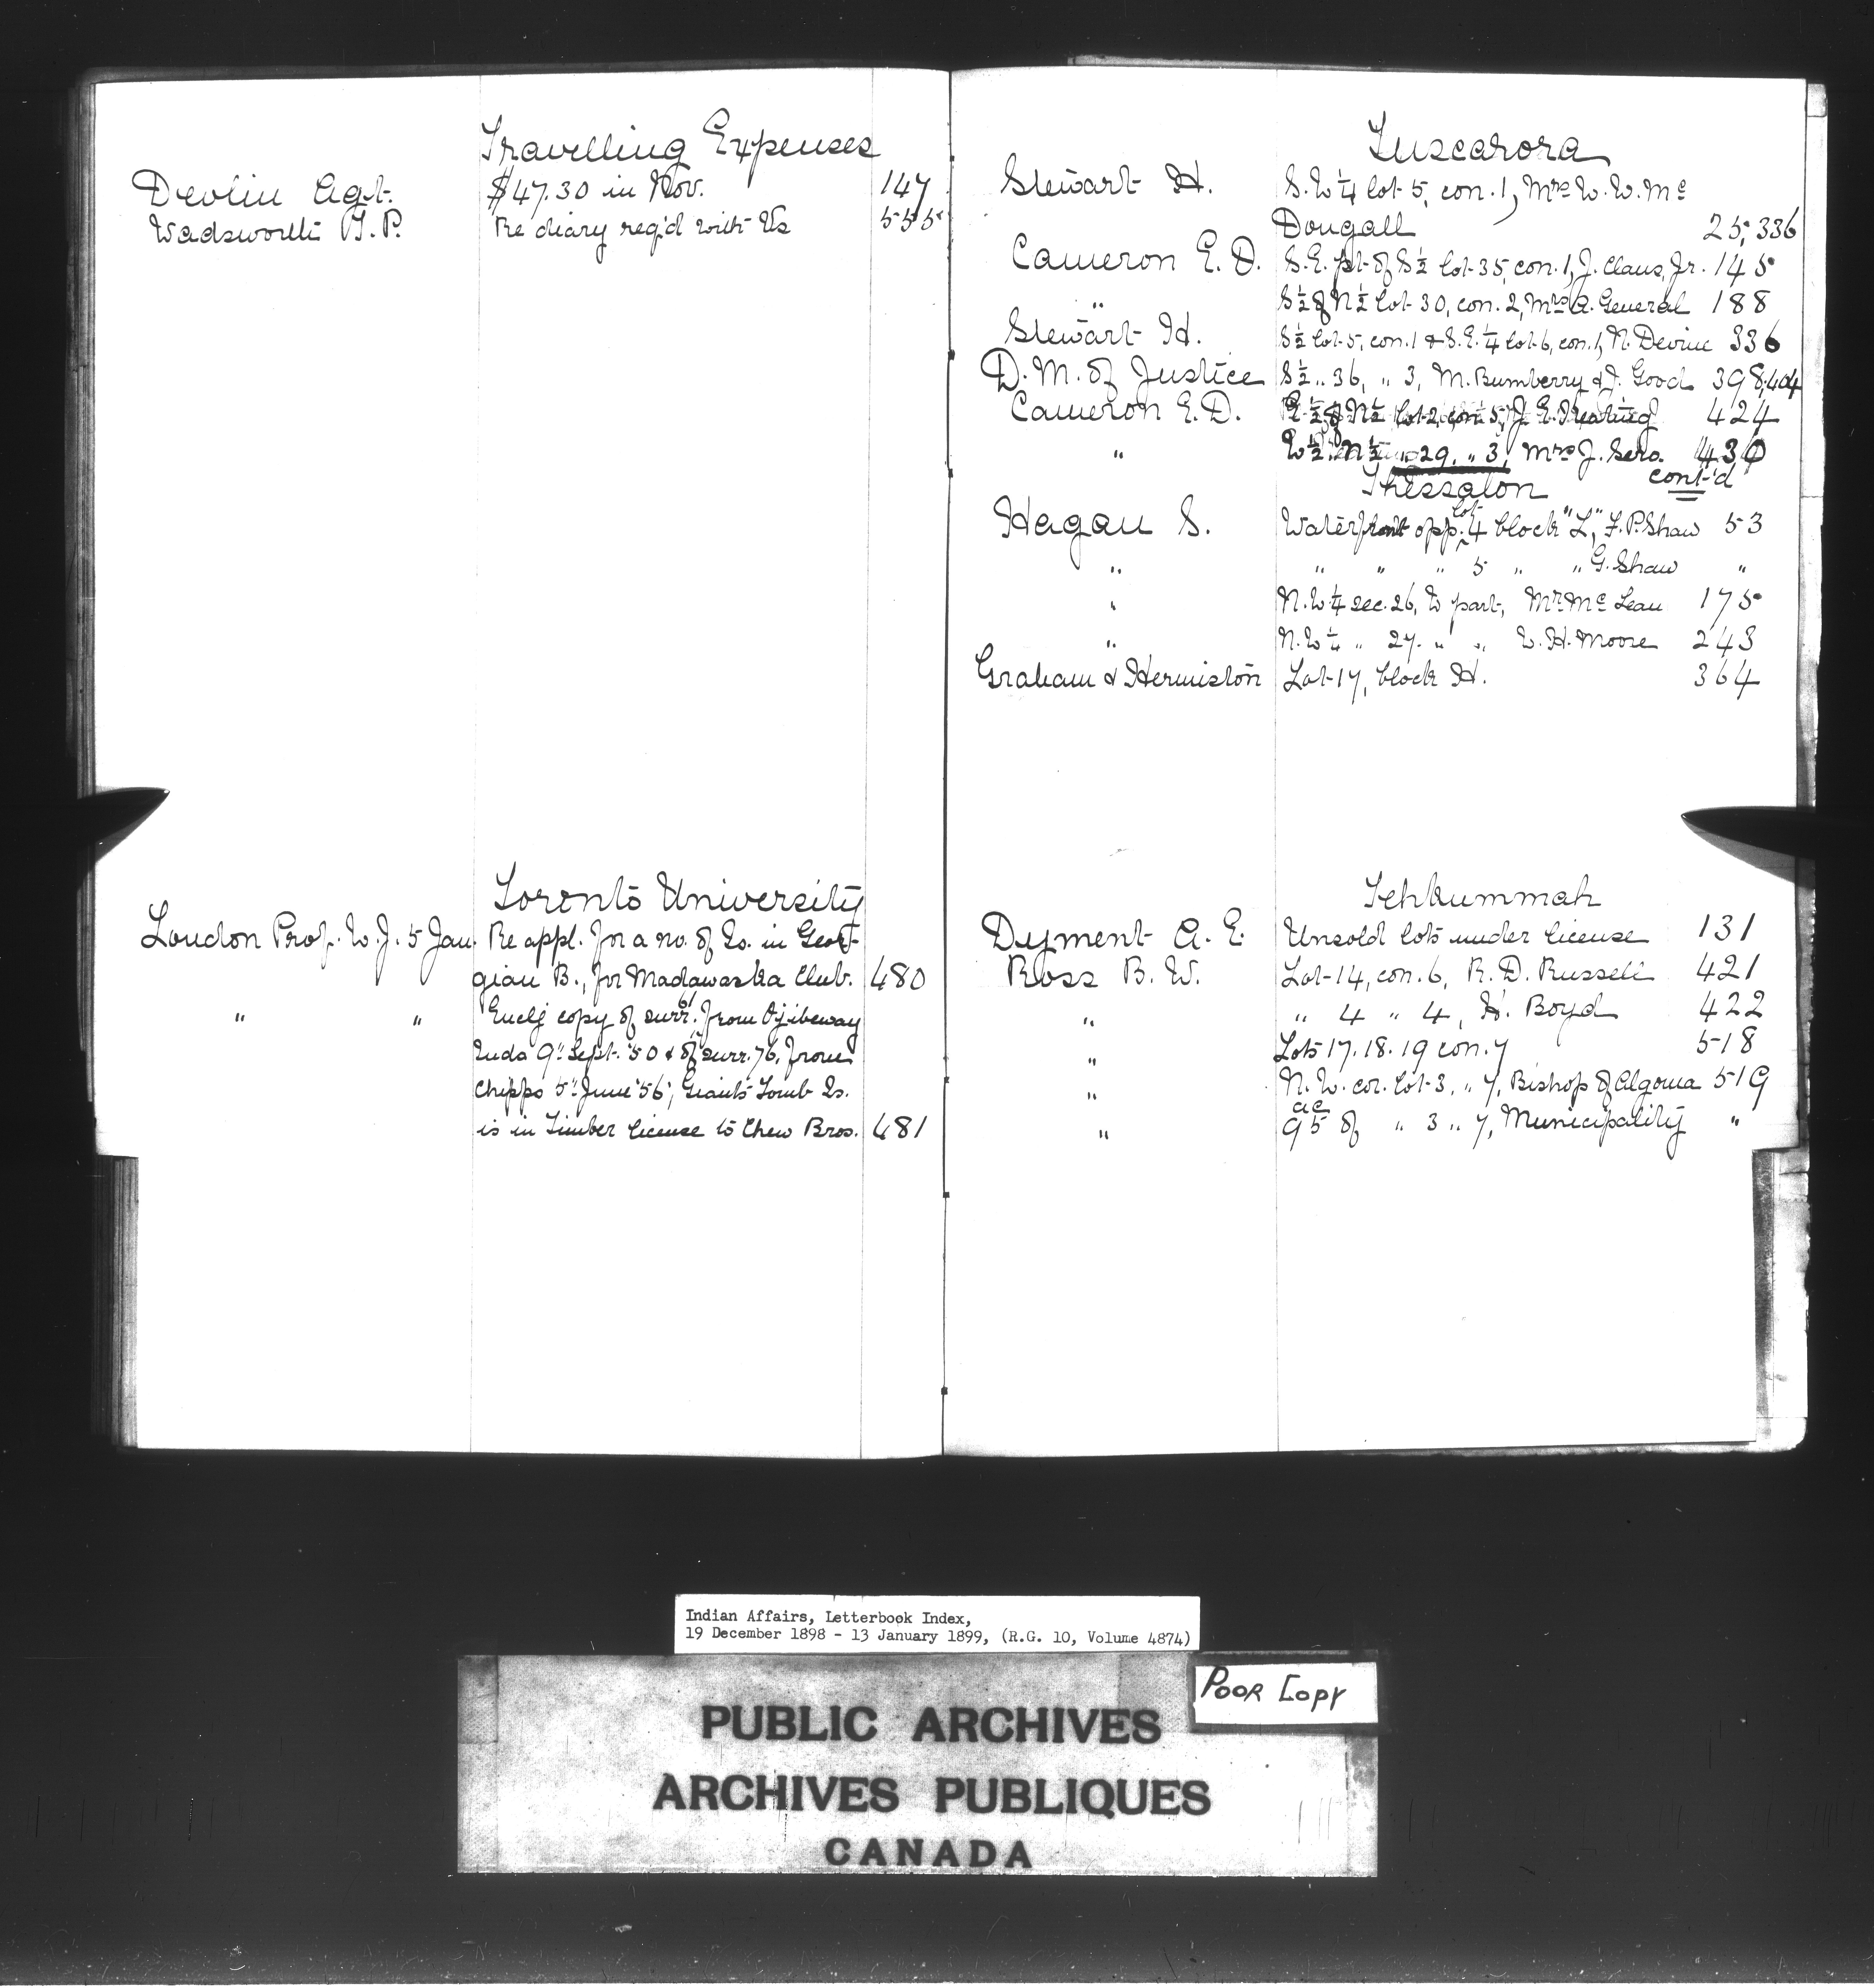 Travelling Expenses
Devlin Agt. $47.30 in Nov. 147
Wadsworth T.P. Re diary req'd with Vs 555
Toronto University
Loudon Prof. W.J. 5 Jan. Re appl. for a no. of Is. in Geor-
gian B., for Madawaska Club. 480
" " Encl'g copy of surr. 61, from Ojibeway
Inds 9" Sept. '50 & of surr. 76, from
Chipps 5" June '56; Giants Tomb Is.
is in Timber license to Chew Bros. 481
Tuscarora
Stewart H. S.W ¼ lot 5, con. 1, Mrs W. W. Mc
Dougall 25, 336
Cameron E. D. S.E. pt of S½ lot 35, con. 1, J. Claus, Jr. 145
" S½ of N½ lot 30, con. 2, Mrs A. General 188
Stewart H. S½ lot 5, con. 1 & S.E. ¼ lot 6, con. 1, N. Devine 336
D. M. of Justice S½ " 36, " 3, M. Bumberry & J. Good 398, 404
Cameron E. D. E ½ of N½ lot 2, con 5, J. E. 424
" W½ " N½ " 29, " 3, Mrs J. Sero 430
cont'd
Thessalon
Hagan S. Waterfront opp. lot 4 block "L", F. P. Shaw 53
" " " " 5 " " G. Shaw "
" N. W ¼ sec. 26, W part, Mr. Mc Lean 175
" N. W ¼ " 27. " " W. H. Moore 243
Graham & Hermiston Lot 17, block H. 364
Tehkummah
Dyment A. E. Unsold lots under license 131
Ross B. W. Lot 14, con. 6, R. D. Russell 421
" " 4 " 4, H. Boyd 422
" Lots 17. 18. 19 con. 7 518
" N. W. cor. lot 3, " 7, Bishop of Algoma 519
" 95 ac of " 3 " 7, Municipality "
Indian Affairs, Letterbook Index,
19 December 1898 - 13 January 1899, (R.G. 10, Volume 4874)
POOR COPY
PUBLIC ARCHIVES
ARCHIVES PUBLIQUES
CANADA